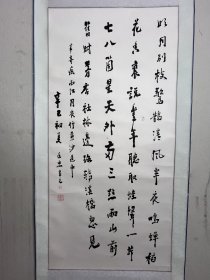 明月別枝驚鵲清風半夜鳴蟬稻
花香裏說豐年聽取蛙聲一片
七八箇星天外兩三點雨山前
舊時茅店社林邊路轉溪橋忽見
辛棄疾西江月夜行黃沙道中
辛巳初夏